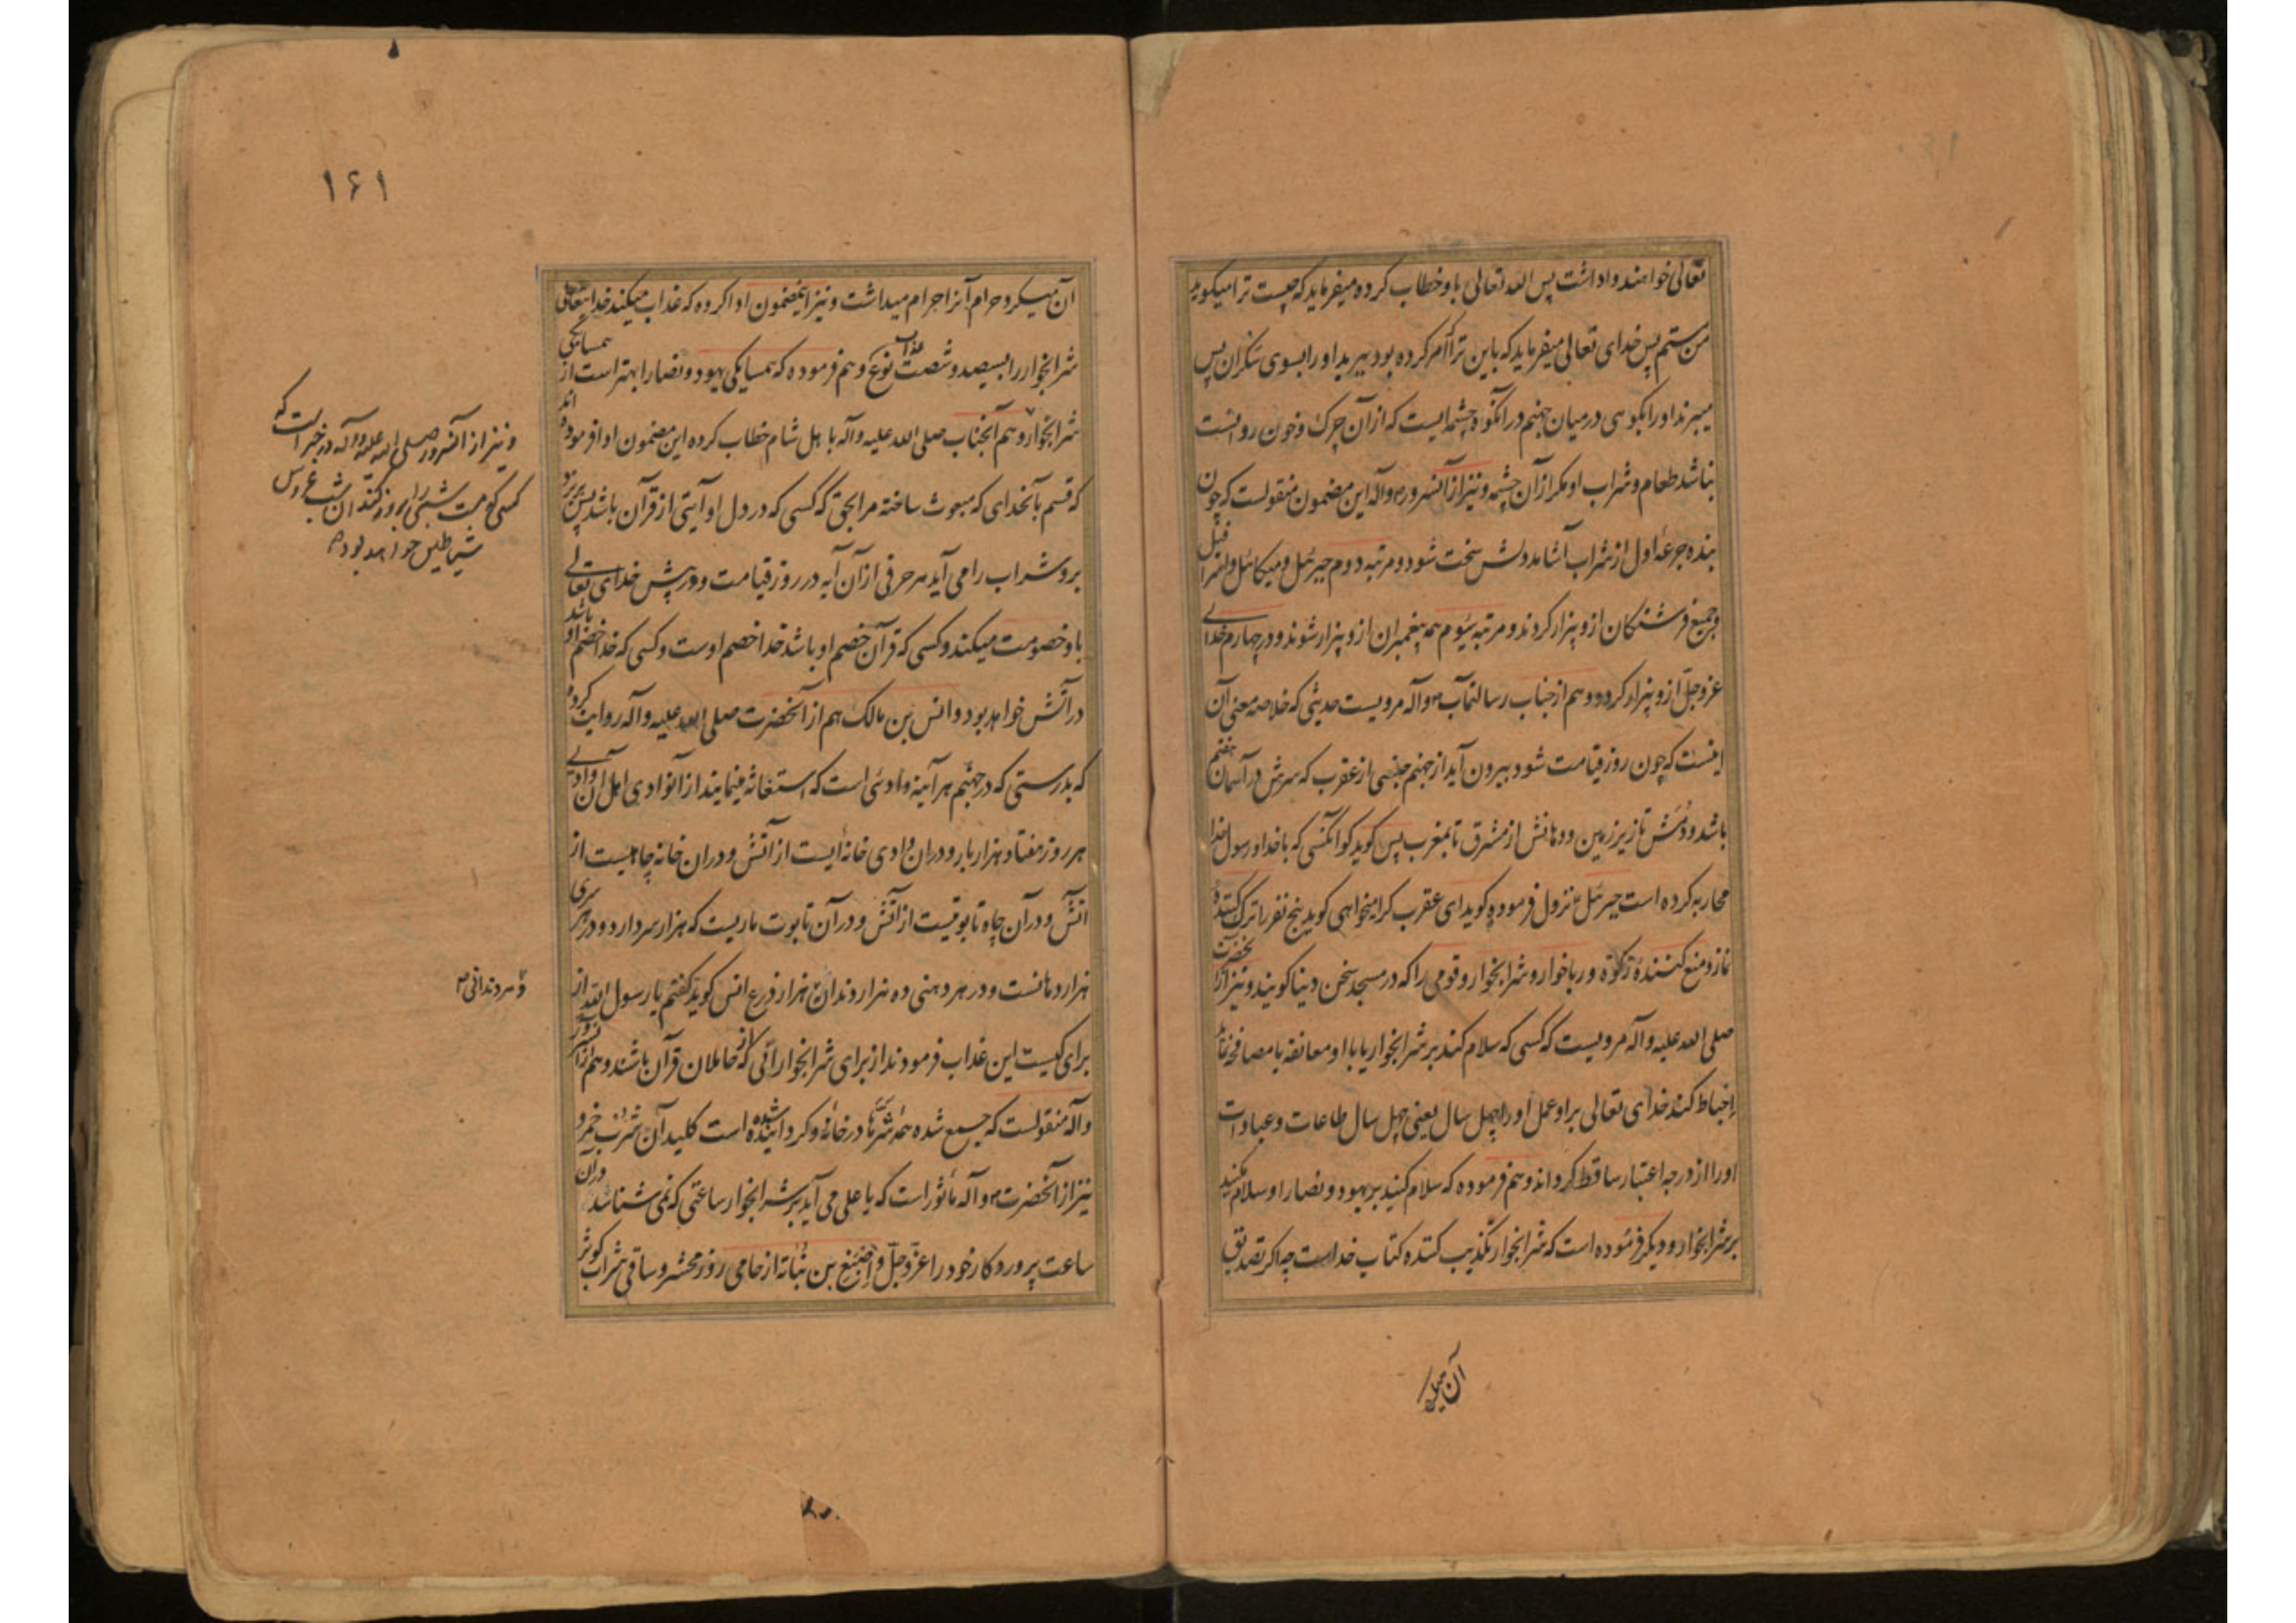 تعالی خواهند واداشت پس الله تعالی باو خطاب کرده میفرماید که چیست ترا میکوید
من مستم پس خدای تعالی میفرماید که باین ترا امر کرده بود ببرید او را بسوی سکران پس
میبرند او را بکوهی در میان جهنم در انکوه چشمه ایست که از آن چرک و خون روانست
نباشد طعام و شراب او مکر از آن چشمه و نیز از آنسرور ص وآله این مضمون منقولست که چون
بنده جرعه اول از شراب آشامد دلش سخت شود و مرتبه دوم جبرئیل و میکائیل و اسرافیل
و جمیع فرشتکان ازو بیزار کردند و مرتبه سیوم همه پیغمبران ازو بیزار شوند و در چهارم خدای
عز وجل ازو بیزار کردد و هم از جناب رسالتمآب ص وآله مرویست حدیثی که خلاصه معنی آن
اینست که چون روز قیامت شود بیرون آید از جهنم جنسی از عقرب که سرش در آسمان هفتم
باشد و دمش تا زیر زمین و دهانش از مشرق تا بمغرب پس کوید کو آنکسی که با خدا و رسول خدا
محاربه کرده است جبرئیل نزول فرموده کوید ای عقرب کرا میخواهی کوید پنج نفر را ترک کننده
نماز و منع کننده زکوة و رباخوار و شرابخوار و قومی را که در مسجد سخن دنیا کویند و نیز از آنحضرت
صلی الله علیه وآله مرویست که کسی که سلام کند بر شرابخوار یا با او معانقه یا مصافحه نماید
احباط کند خدای تعالی برو عمل او را چهل سال یعنی چهل سال طاعات و عبادات
او را از درجه اعتبار ساقط کرداند و هم فرموده که سلام کنید بر یهود و نصارا و سلام مکنید
بر شرابخوار و دیکر فرموده است که شرابخوار تکذیب کننده کتاب خداست چه اکر تصدیق
آن میکرد
۱۶۱
آن میکرد حرام آنرا حرام میداشت و نیز اینمضمون ادا کرده که عذاب میکند خدایتعالی
شرابخوار را بسیصد و شصت نوع عذاب و هم فرموده که همسایکی یهود و نصارا بهتر است از همسایکی
شرابخوار و هم آنجناب صلی الله علیه وآله باهل شام خطاب کرده این مضمون ادا فرموده اند
که قسم بآنخدای که مبعوث ساخته مرا بحق که کسی که در دل او آیتی از قرآن باشد پس بریزد
برو شراب را می آید هر حرفی از آن آیه در روز قیامت و در پیش خدای تعالی
باو خصومت میکند و کسی که قرآن خصم او باشد خدا خصم اوست و کسی که خدا خصم او باشد
در آتش خواهد بود و انس بن مالک هم از آنحضرت صلی الله علیه وآله روایت کرده
که بدرستی که در جهنم هر آینه وادئی است که استغاثه مینمایند از آنوادی اهل آن وادی
هر روز هفتاد هزار بار و در ان وادی خانه ایست از آتش و در ان خانه چاهیست از
آتش و در آن چاه تابوتیست از آتش و در آن تابوت ماریست که هزار سر دارد و در هر سری
هزار دهانست و در هر دهنی ده هزار دندان هزار ذرع انس کوید کفتم یا رسول الله از
برای کیست این عذاب فرمودند از برای شرابخوارانی که از حاملان قرآن باشند و هم از آنسرور
وآله منقولست که جمیع شده همه شرها در خانه و کردانیده شده است کلید آن شرب خمر و
نیز از آنحضرت ص وآله ماثور است که یا علی می آید بر شرابخوار ساعتی که نمی شناسد در آن
ساعت پروردکار خود را عز وجل و اصبغ بن نباته از حامی روز محشر و ساقی شراب کوثر
و نیز از آنسرور صلی الله علیه وآله در خبر است که
کسی که مست شبی را بروز کند آن شب عروس
شیاطین خواهد بود
و هر دندانی